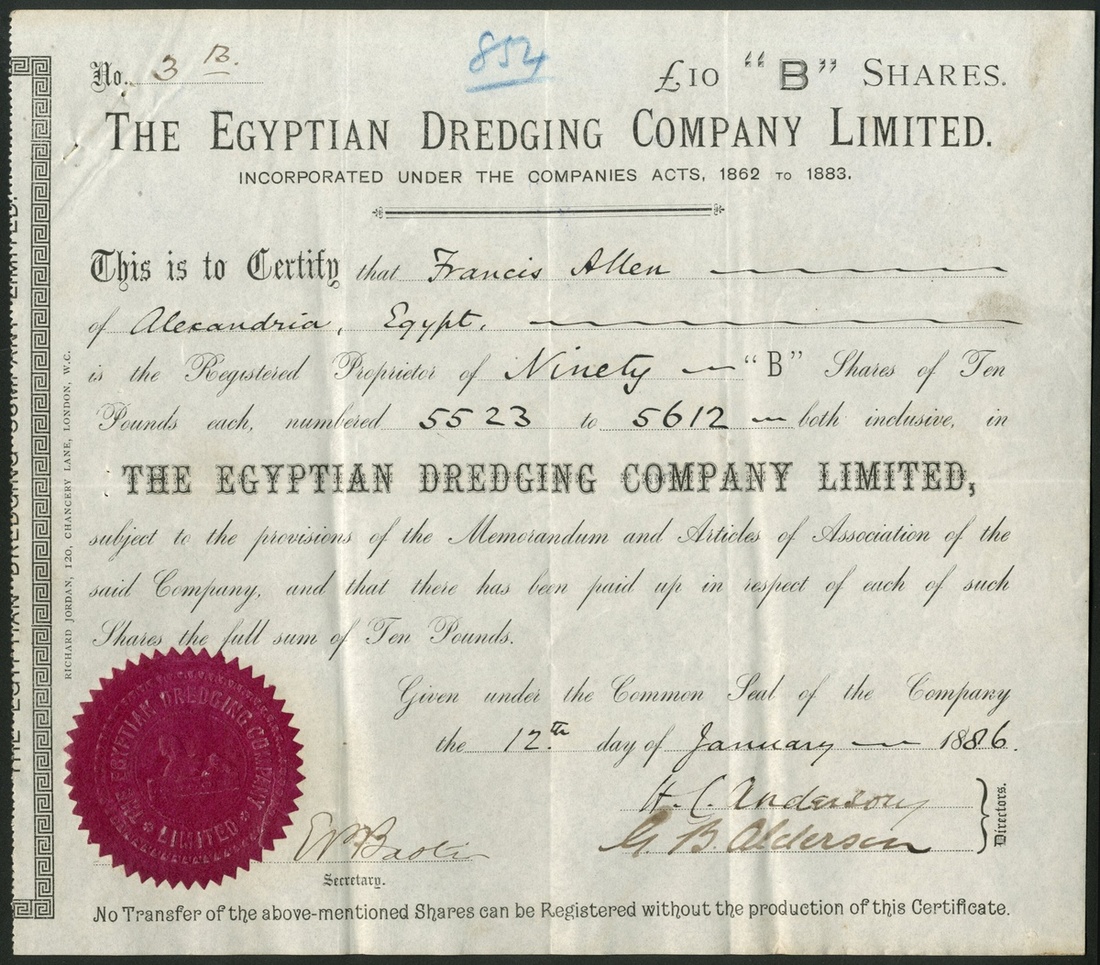 No. 3 B.
854
£10 "B" SHARES.
THE EGYPTIAN DREDGING COMPANY LIMITED.
INCORPORATED UNDER THE COMPANIES ACTS, 1862 TO 1883.
This is to Certify that Francis Allen
of Alexandria, Egypt,
is the Registered Proprietor of Ninety "B" Shares of Ten
Pounds each, numbered 5523 to 5612 both inclusive, in
THE EGYPTIAN DREDGING COMPANY LIMITED,
subject to the provisions of the Memorandum and Articles of Association of the
said Company, and that there has been paid up in respect of each of such
Shares the full sum of Ten Pounds.
Given under the Common Seal of the Company
the 12th day of January 1886.
H. C. Anderson
G. B. Alderson
Directors.
Secretary.
THE EGYPTIAN DREDGING COMPANY
LIMITED
No Transfer of the above-mentioned Shares can be Registered without the production of this Certificate.
RICHARD JORDAN, 120, CHANCERY LANE, LONDON, W.C.
THE EGYPTIAN DREDGING COMPANY LIMITED.